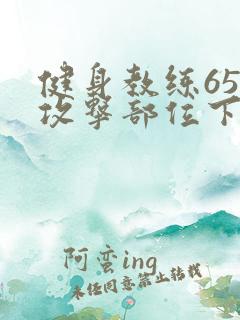 健身教练65
攻擊部位下
阿蛮ing
未经同意禁止转载